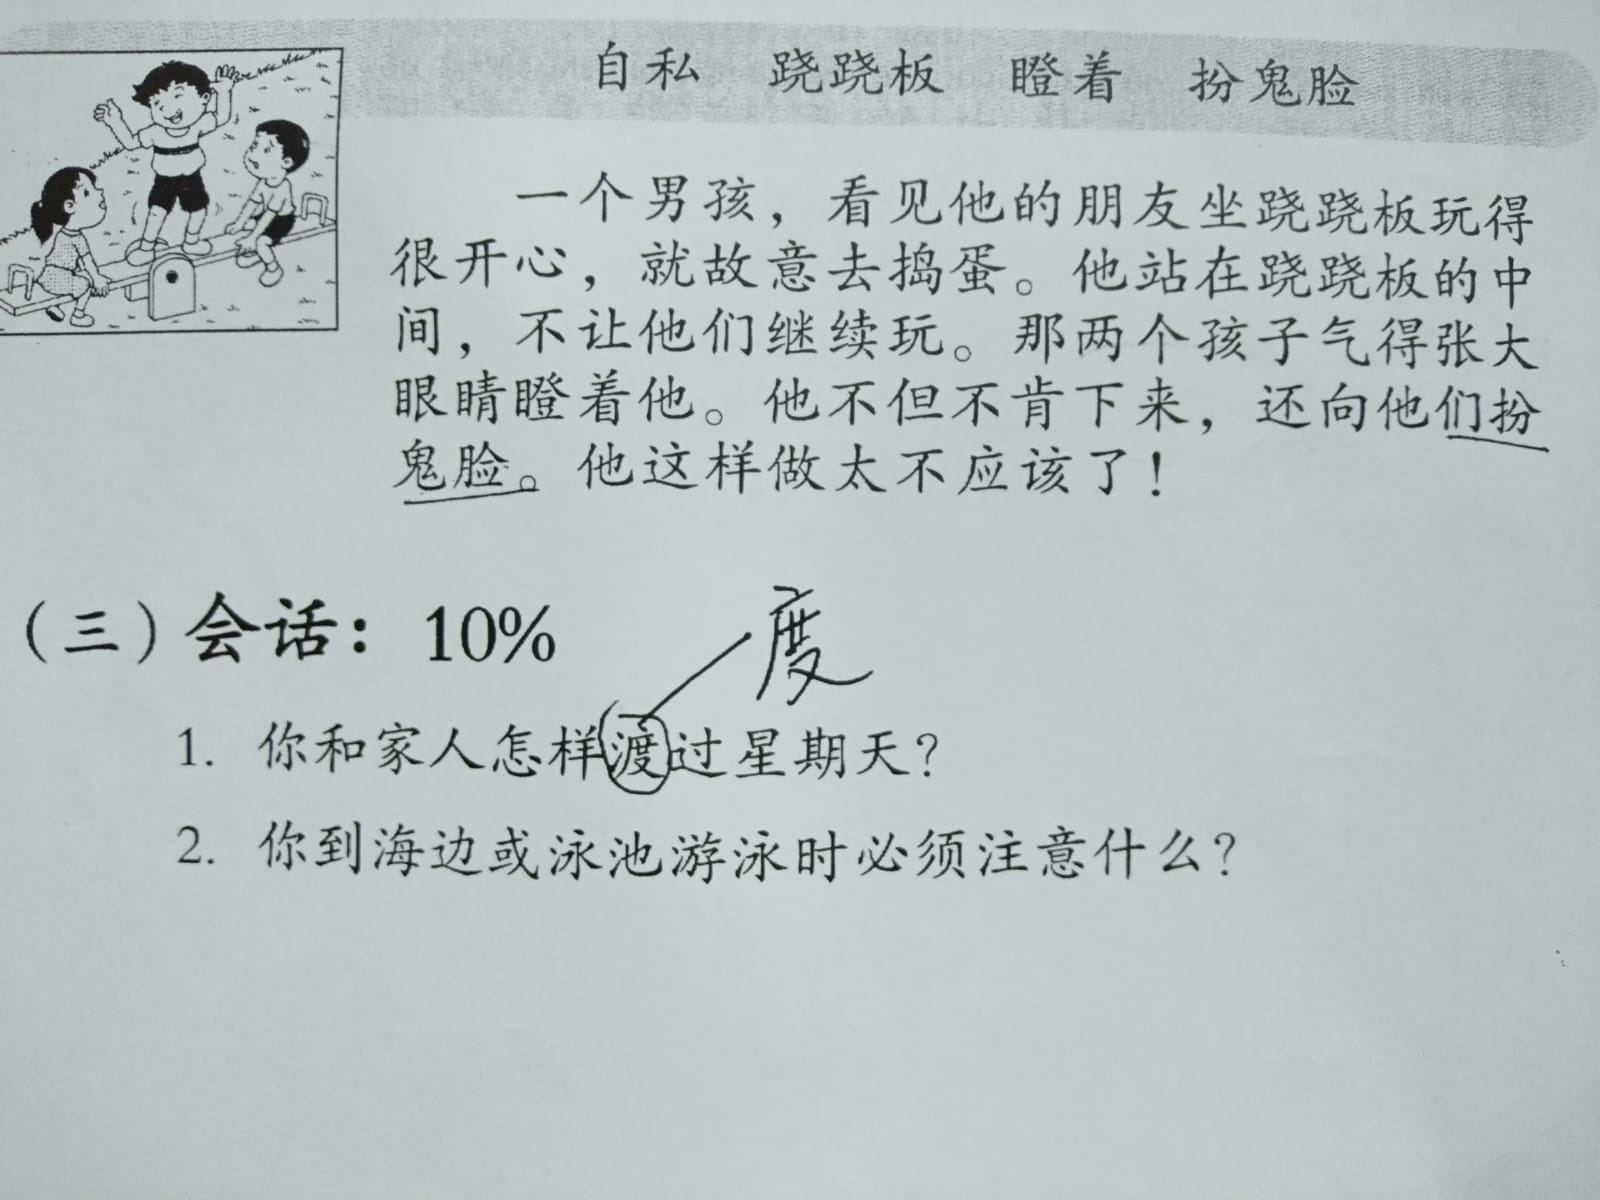 自私 跷跷板 瞪着 扮鬼脸
一个男孩，看见他的朋友坐跷跷板玩得
很开心，就故意去捣蛋。他站在跷跷板的中
间，不让他们继续玩。那两个孩子气得张大
眼睛瞪着他。他不但不肯下来，还向他们扮
鬼脸。他这样做太不应该了！
（三）会话：10%
度
1. 你和家人怎样渡过星期天？
2. 你到海边或泳池游泳时必须注意什么？